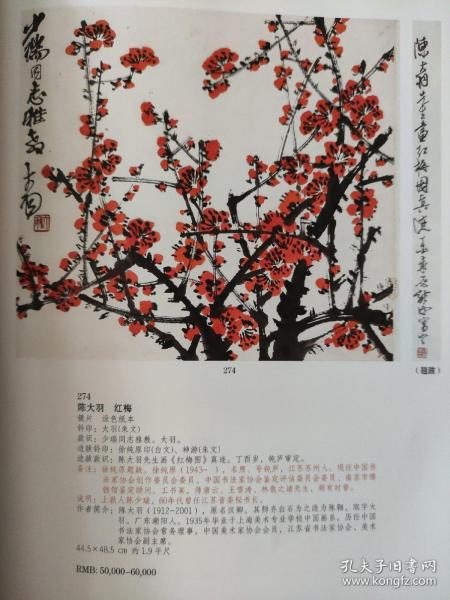 少瑞同志雅教
大羽
274
（题跋）
274
陈大羽　红梅
镜片　设色纸本
钤印：大羽(朱文)
款识：少瑞同志雅教。大羽。
边跋钤印：徐纯原印(白文)、神游(朱文)
边跋款识：陈大羽先生画《红梅图》真迹。丁酉岁，钝庐审定。
备注：徐纯原题跋。徐纯原（1943- ），名熙，号钝庐，江苏苏州人。现任中国书
法家协会创作委员会委员，中国书法家协会鉴定评估委员会委员，南京市博
物馆鉴定顾问。工书画，得唐云、王雪涛、林散之诸先生，颇有时誉。
说明：上款人陈少瑞，60年代曾任江苏省委秘书长。
作者简介：陈大羽（1912-2001），原名汉卿，其师齐白石为之改为陈翱，取字大
羽，广东潮阳人。1935年毕业于上海美术专业学校中国画系。历任中国
书法家协会常务理事，中国美术家协会会员，江苏省书法家协会、美术
家协会副主席。
44.5×48.5 cm 约 1.9 平尺
RMB: 50,000-60,000
孔夫子旧书网